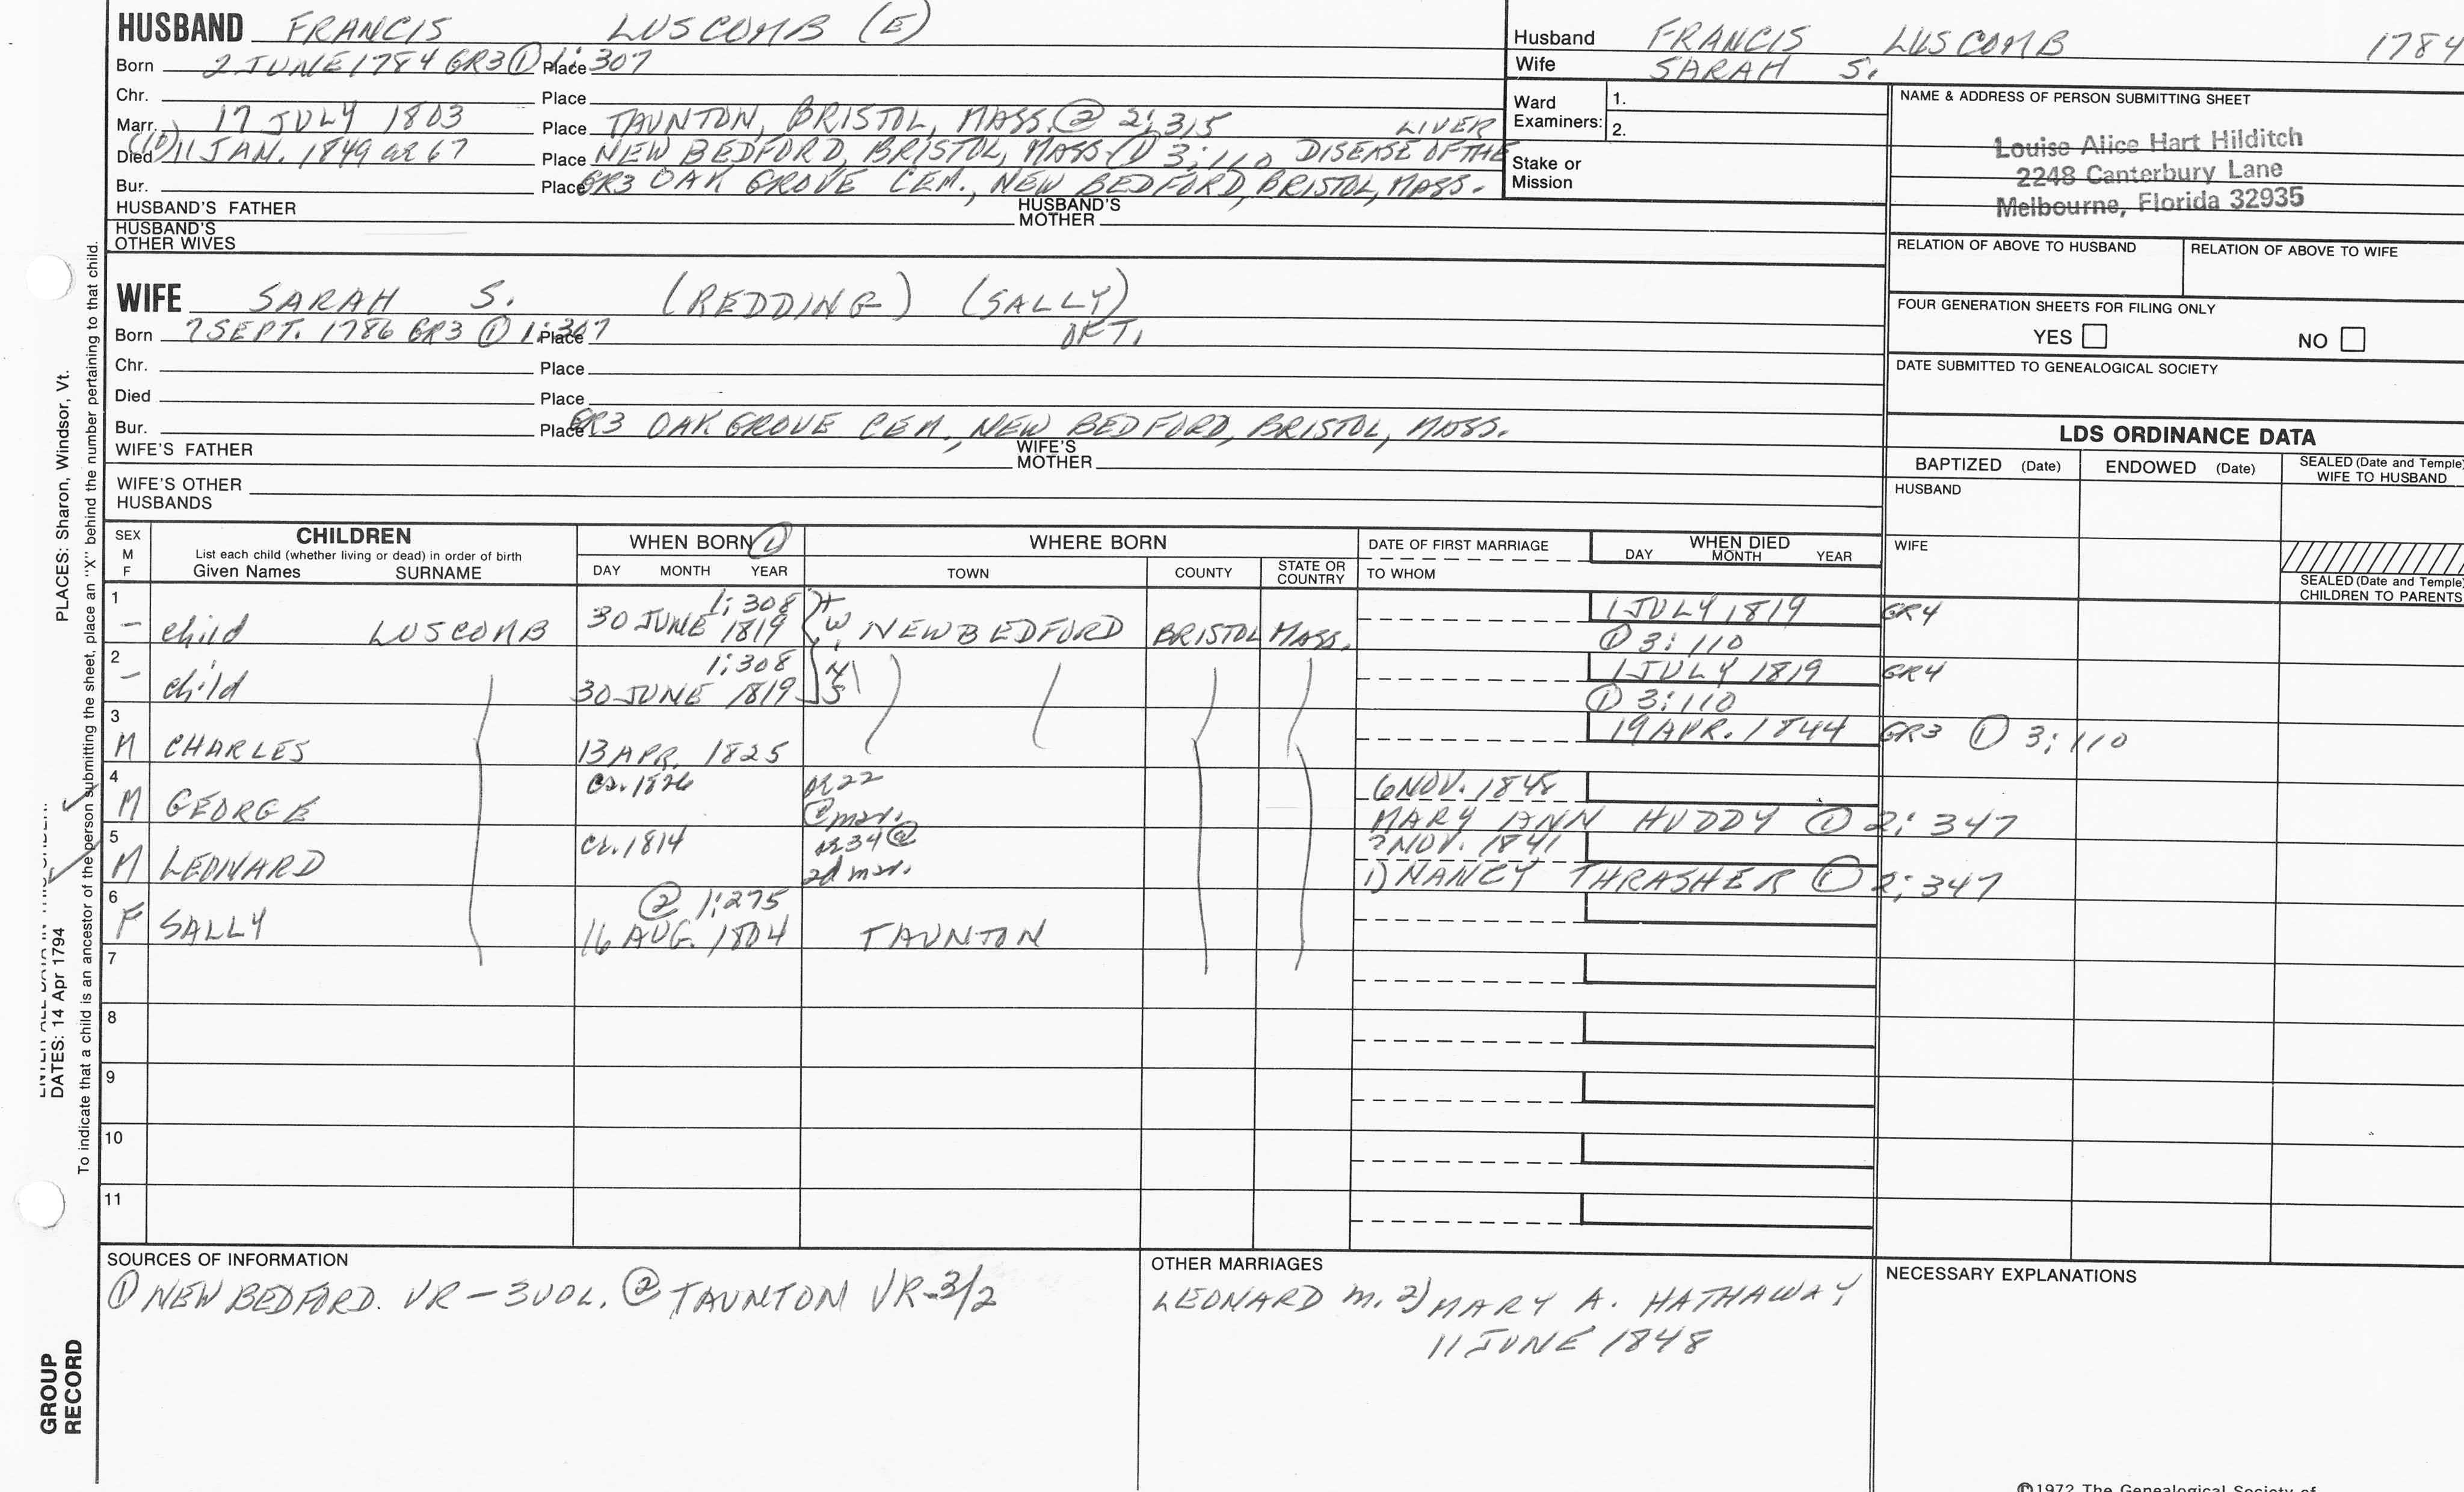 HUSBAND FRANCIS LUSCOMB (E)
Born 2 JUNE 1784 GR3 ① 1:307 Place
Chr. Place
Marr. 17 JULY 1803 Place TAUNTON, BRISTOL, MASS. ② 2:315
LIVER
Died 11 JAN. 1849 ae 67 Place NEW BEDFORD, BRISTOL, MASS. ① 3:110 DISEASE OF THE
Bur. Place GR3 OAK GROVE CEM., NEW BEDFORD, BRISTOL, MASS.
HUSBAND'S FATHER HUSBAND'S MOTHER
HUSBAND'S OTHER WIVES
Husband FRANCIS LUSCOMB 1784
Wife SARAH S.
Ward Examiners: 1.
2.
Stake or Mission
NAME & ADDRESS OF PERSON SUBMITTING SHEET
Louise Alice Hart Hilditch
2248 Canterbury Lane
Melbourne, Florida 32935
RELATION OF ABOVE TO HUSBAND RELATION OF ABOVE TO WIFE
FOUR GENERATION SHEETS FOR FILING ONLY
YES NO
DATE SUBMITTED TO GENEALOGICAL SOCIETY
WIFE SARAH S. (REDDING) (SALLY)
Born 7 SEPT. 1786 GR3 ① 1:307 Place
Chr. Place
Died Place
Bur. Place GR3 OAK GROVE CEM., NEW BEDFORD, BRISTOL, MASS.
WIFE'S FATHER WIFE'S MOTHER
WIFE'S OTHER HUSBANDS
LDS ORDINANCE DATA
BAPTIZED (Date) ENDOWED (Date) SEALED (Date and Temple) WIFE TO HUSBAND
HUSBAND
WIFE
SEALED (Date and Temple) CHILDREN TO PARENTS
SEX M F CHILDREN WHEN BORN ① WHERE BORN DATE OF FIRST MARRIAGE WHEN DIED
List each child (whether living or dead) in order of birth
Given Names SURNAME DAY MONTH YEAR TOWN COUNTY STATE OR COUNTRY TO WHOM DAY MONTH YEAR
1 1:308 1 JULY 1819 GR4
– child LUSCOMB 30 JUNE 1819 NEW BEDFORD BRISTOL MASS. ① 3:110
2 1:308 1 JULY 1819 GR4
– child 30 JUNE 1819 ① 3:110
3 19 APR. 1844 GR3 ① 3:110
M CHARLES 13 APR. 1825
4 ca. 1826 ae 22 6 NOV. 1848
M GEORGE @ mar. MARY ANN HUDDY ① 2:347
5 ca. 1814 ae 34 @ NOV. 1841
M LEONARD 2d mar. 1) NANCY THRASHER ① 2:347
6 ② 1:275
F SALLY 16 AUG. 1804 TAUNTON
7
8
9
10
11
SOURCES OF INFORMATION
① NEW BEDFORD. VR – 3 VOL. ② TAUNTON VR
OTHER MARRIAGES
LEONARD m. 2) MARY A. HATHAWAY
11 JUNE 1848
NECESSARY EXPLANATIONS
©1972 The Genealogical Society of
PLACES: Sharon, Windsor, Vt.
DATES: 14 Apr 1794
To indicate that a child is an ancestor of the person submitting the sheet, place an "X" behind the number pertaining to that child.
GROUP
RECORD